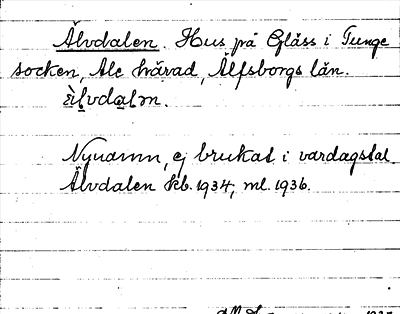 Älvdalen. Hus på Glåss i Tunge
socken, Ale härad, Älfsborgs län.
Nynamn, ej brukat i vardagstal.
Älvdalen kb. 1934, ml. 1936.